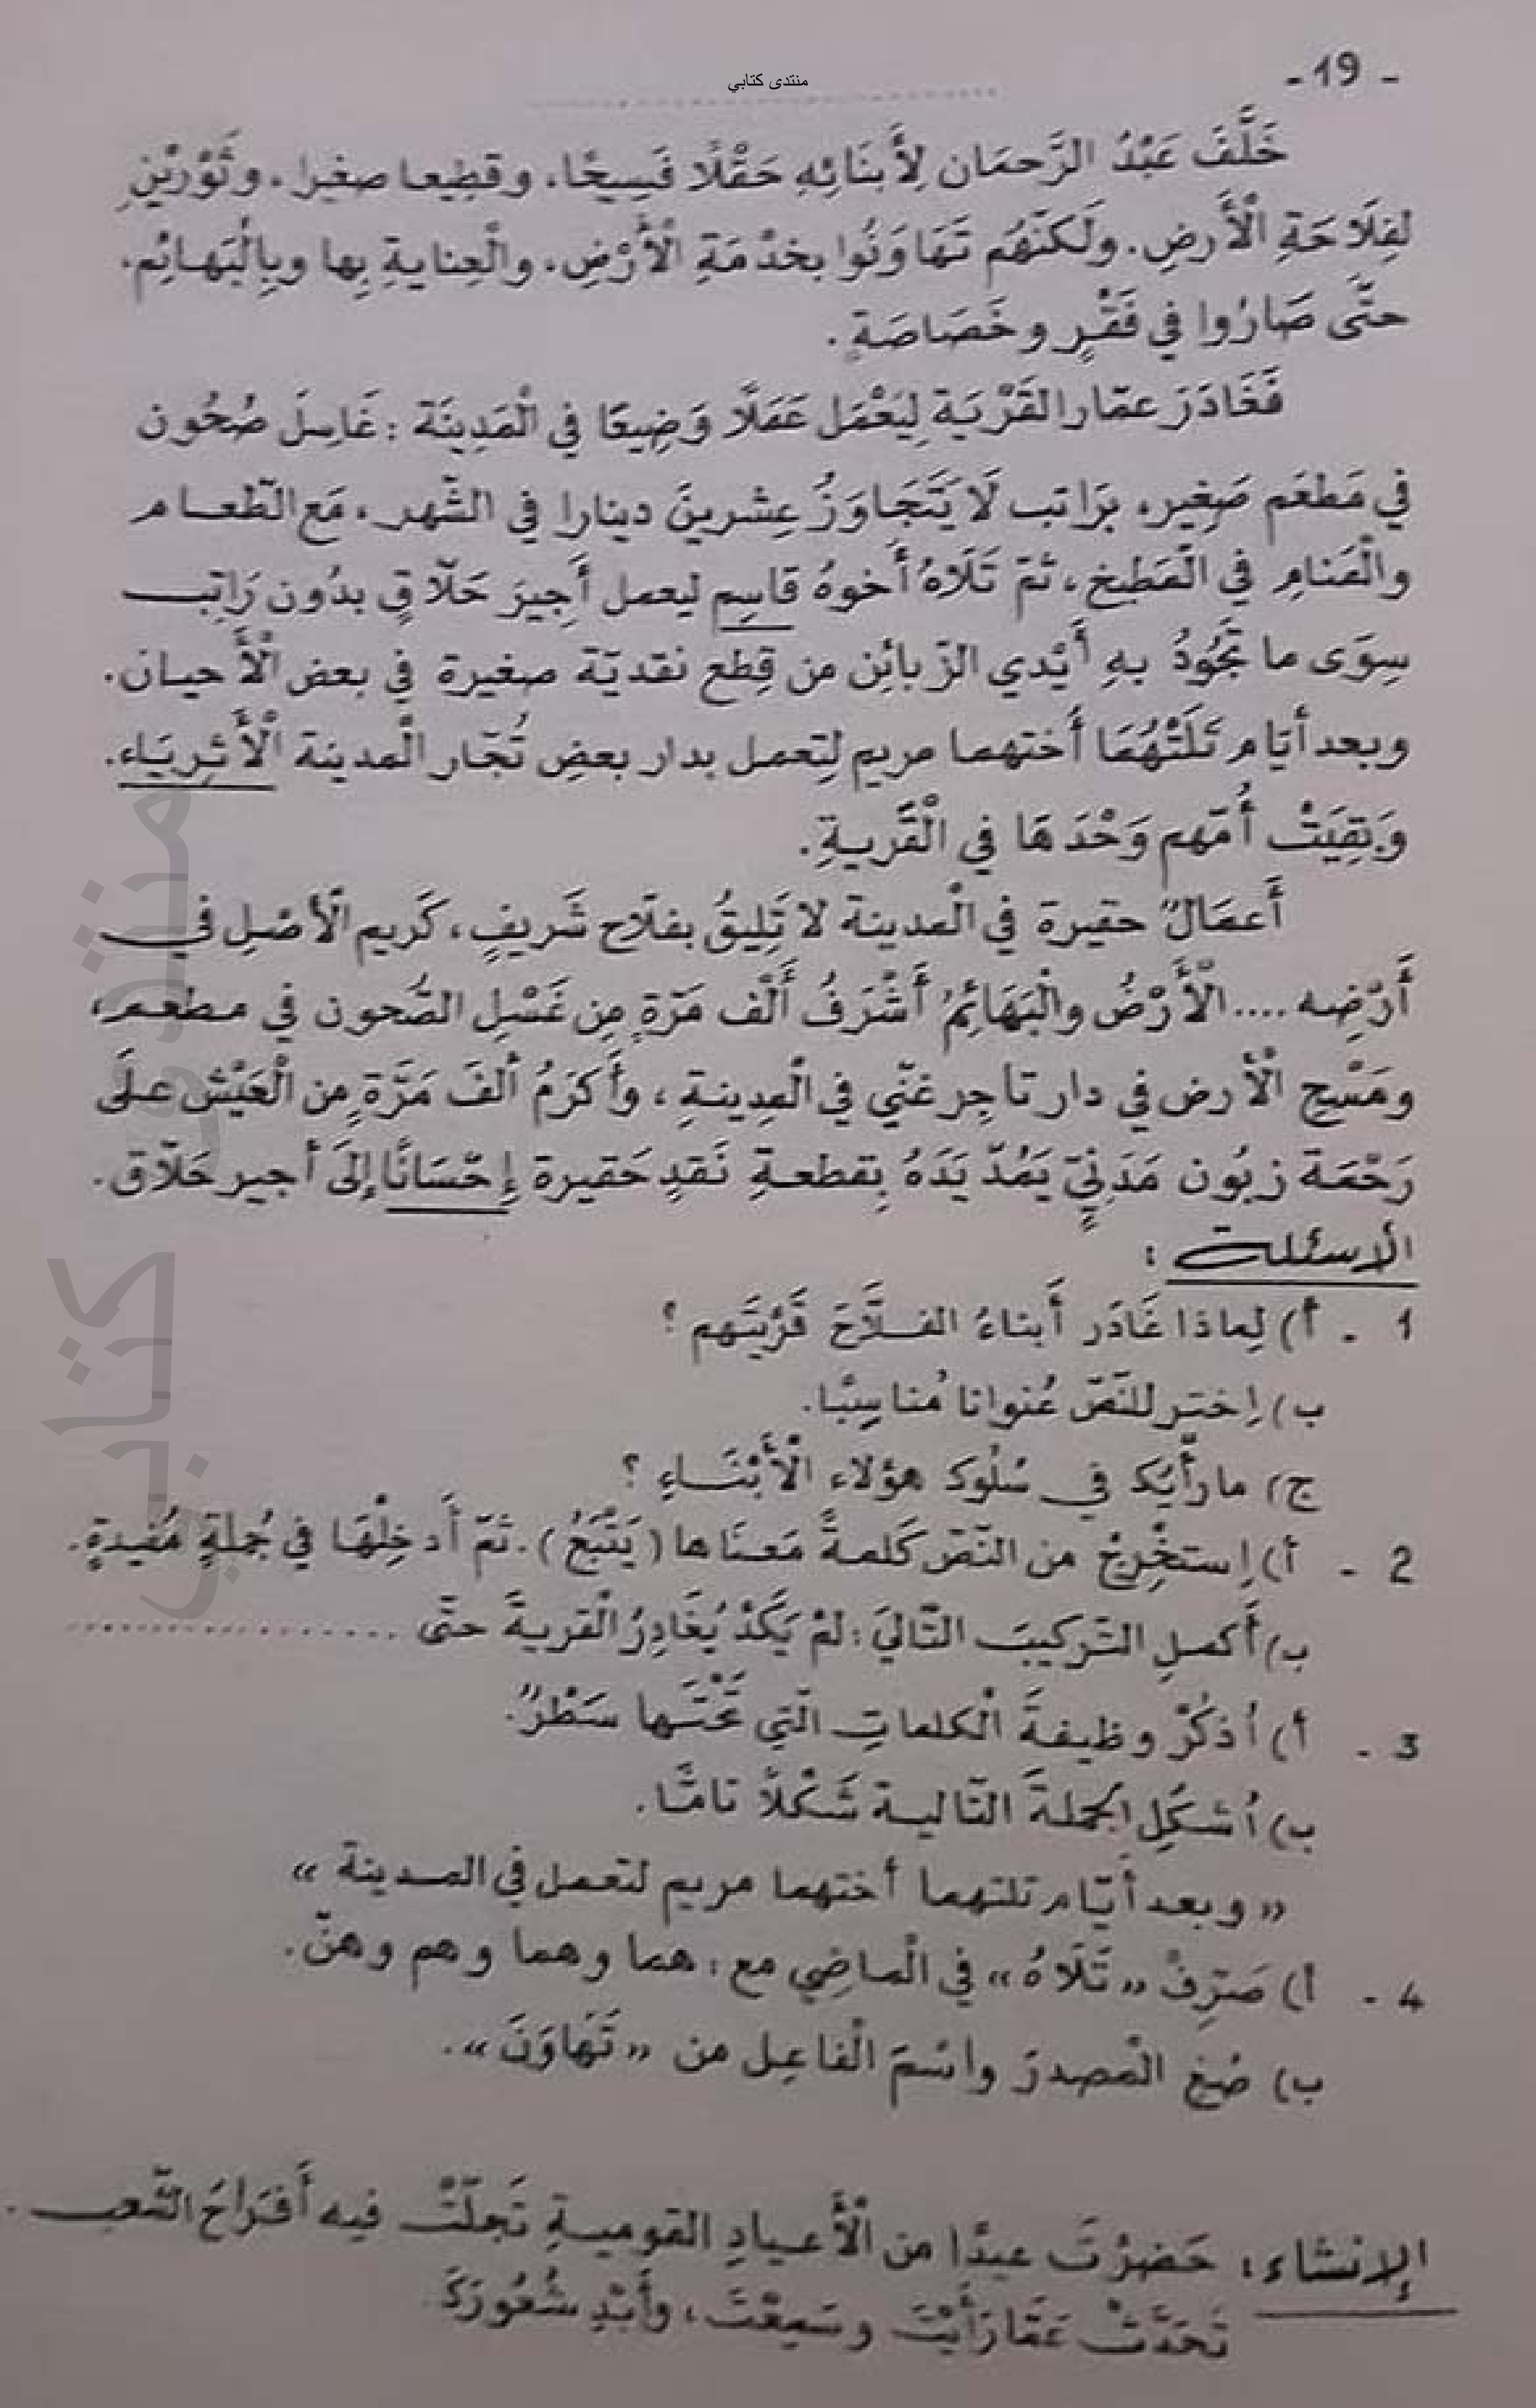 - 19 -
منتدى كتابي
خَلَّفَ عَبْدُ الرَّحمَان لِأَبنَائِهِ حَقْلًا فَسِيحًا، وقطِيعا صغيرا، وثَوْرَيْنِ
لفِلَاحَةِ الْأَرضِ. ولَكنّهُم تَهَاوَنُوا بخدْمَةِ الْأَرْضِ، والْعِنايةِ بِها وبِالْبَهائِم،
حتَّى صَارُوا في فَقْرٍ وخَصَاصَةٍ.
فَغَادَرَ عمّار القَرْيَة لِيَعْمَل عَمَلًا وَضِيعًا في الْمَدِينَة : غَاسِلَ صُحُون
في مَطعَم صَغِير، برَاتب لَا يَتَجَاوَزُ عِشرينَ دينارا في الشّهر، مَع الطّعام
والْمَنامِ في الْمَطبخ، ثمّ تَلَاهُ أَخوهُ قاسِم ليعمل أَجِيرَ حَلّاقٍ بدُون رَاتِب
سِوَى ما تَجُودُ بهِ أَيْدي الزّبائِن من قِطع نقديّة صغيرة في بعض الْأَحيان.
وبعد أيّام تَلَتْهُمَا أختهما مريم لِتعمل بدار بعضِ تُجّار الْمدينة الْأَثرِيَاء.
وَبقِيَتْ أُمّهم وَحْدَهَا في الْقَريةِ.
أَعمَالٌ حقيرة في الْمدينة لا تَلِيقُ بفلّاح شَريفٍ، كَريم الْأَصْلِ في
أَرْضِه .... الْأَرْضُ والْبَهَائِمُ أَشْرَفُ أَلْف مَرّةٍ مِن غَسْلِ الصُّحون في مطعم،
ومَسْحِ الْأَرض في دار تاجِر غنّي في الْمدِينةِ، وأَكرَمُ ألفَ مَرَّةٍ مِن الْعَيْش علَى
رَحْمَة زبُون مَدَنِيٍّ يَمُدّ يَدَهُ بِقطعةِ نَقدٍ حَقيرة إِحْسَانًا إلَى أجير حَلّاق.
الأسئلة :
1 - أ) لِماذا غَادَر أَبناءُ الفلَّاحَ قَرْيَتَهم ؟
ب) اِختر للنّصّ عُنوانا مُناسِبًا.
ج) ما رأْيُك في سُلُوك هؤلاء الْأَبْنَاءِ ؟
2 - أ) اِستخْرِجْ من النّصّ كَلمةً مَعنَاها (يَتْبَعُ). ثمّ أَدخِلْهَا في جُملَةٍ مُفيدةٍ.
ب) أَكملِ التّركيبَ التّاليَ : لمْ يَكَدْ يُغَادِرُ الْقريةَ حتّى ..................
3 - أ) أُذكُرْ وظيفةَ الْكلماتِ الّتي تَحْتَها سَطْرٌ.
ب) أُشكلِ الجملةَ التّالية شَكْلًا تامًّا.
« وبعد أيّام تلتهما أختهما مريم لتعمل في المدينة »
4 - أ) صَرِّفْ « تَلَاهُ » في الْماضِي مع : هما وهما وهم وهنّ.
ب) صُغ الْمصدرَ واسْمَ الْفاعِل من « تَهَاوَنَ ».
الإنشاء : حَضرْتَ عيدًا من الْأَعيادِ القوميةِ تَجلّتْ فيه أَفرَاحُ الشّعب.
تَحَدَّثْ عَمّا رَأَيْتَ وسَمِعْتَ، وأَبْدِ شُعُورَكَ.
منتدى كتابي